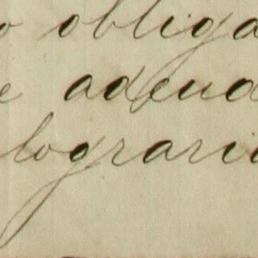 o obliga
e adeud
lograri